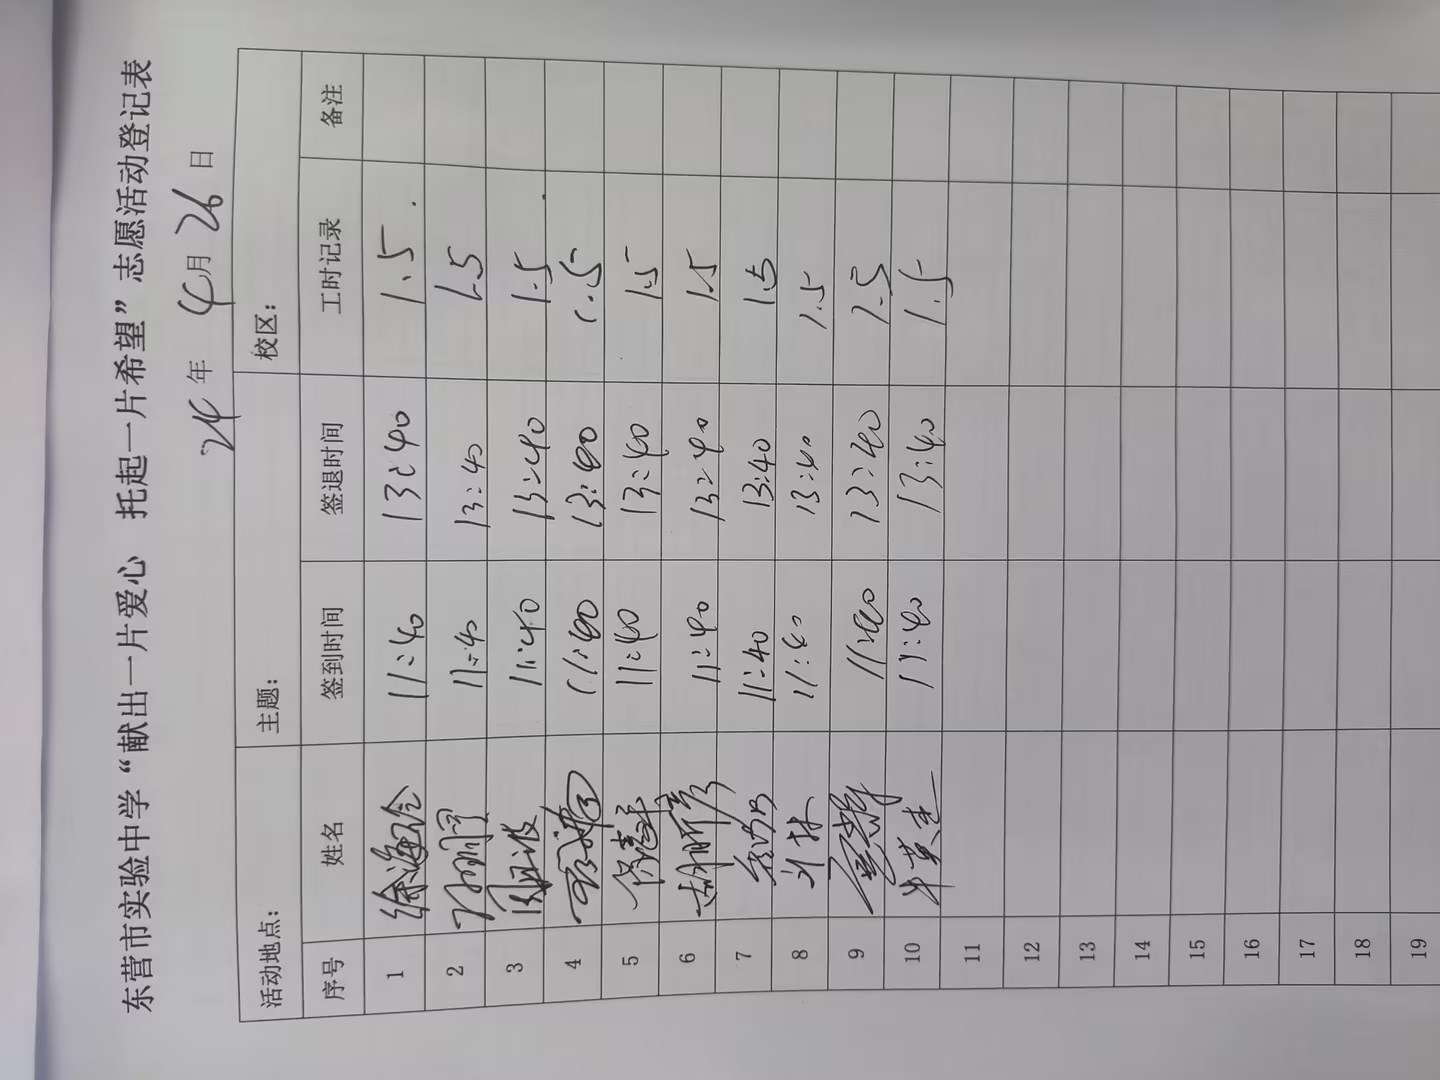 东营市实验中学“献出一片爱心 托起一片希望”志愿活动登记表
24年 4月26日
活动地点： 主题： 校区：
序号 姓名 签到时间 签退时间 工时记录 备注
1 徐海金 11:40 13:40 1.5
2 11:40 13:40 1.5
3 周波 11:40 13:40 1.5
4 11:40 13:40 1.5
5 11:40 13:40 1.5
6 胡彦 11:40 13:40 1.5
7 11:40 13:40 1.5
8 11:40 13:40 1.5
9 11:40 13:40 1.5
10 牛英杰 11:40 13:40 1.5
11
12
13
14
15
16
17
18
19